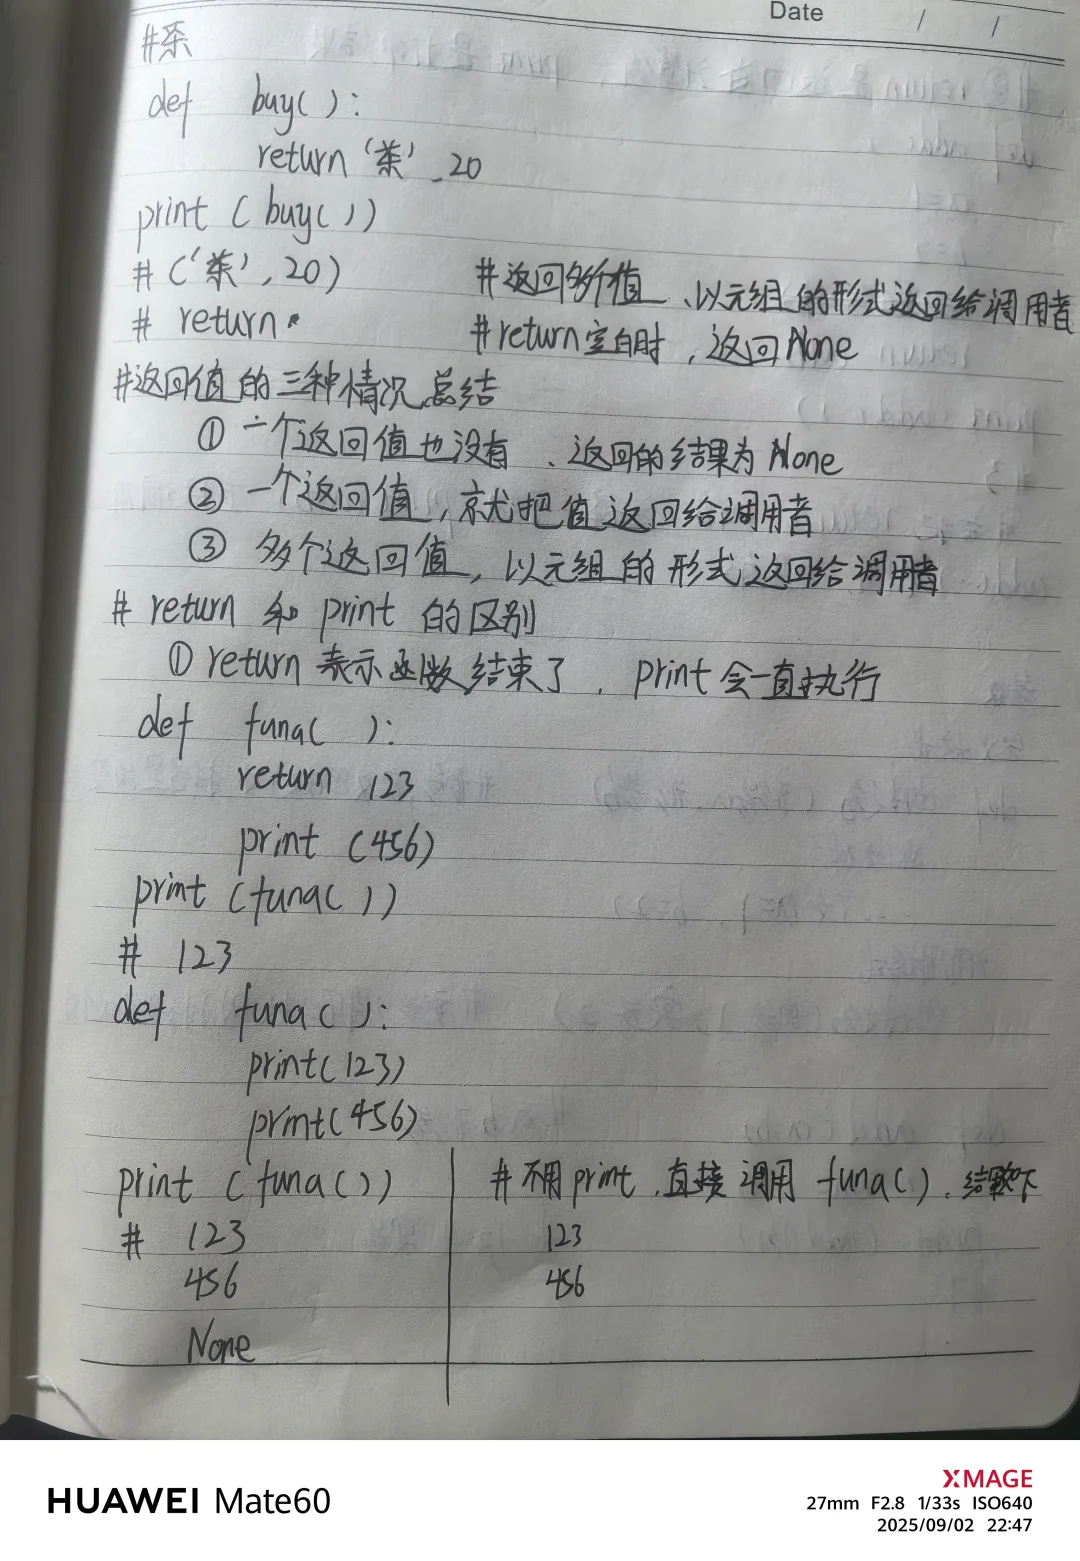 Date / /
#茶
def buy():
return '茶', 20
print (buy())
#('茶', 20) #返回多个值、以元组的形式返回给调用者
# return #return空白时，返回None
#返回值的三种情况总结
① 一个返回值也没有、返回的结果为None
② 一个返回值，就把值返回给调用者
③ 多个返回值，以元组的形式返回给调用者
# return 和 print 的区别
① return 表示函数结束了，print会一直执行
def funa( ):
return 123
print (456)
print (funa())
# 123
def funa():
print(123)
print(456)
print (funa()) #不用print，直接调用 funa()，结果如下
# 123 123
456 456
None
HUAWEI Mate60
XMAGE
27mm F2.8 1/33s ISO640
2025/09/02 22:47